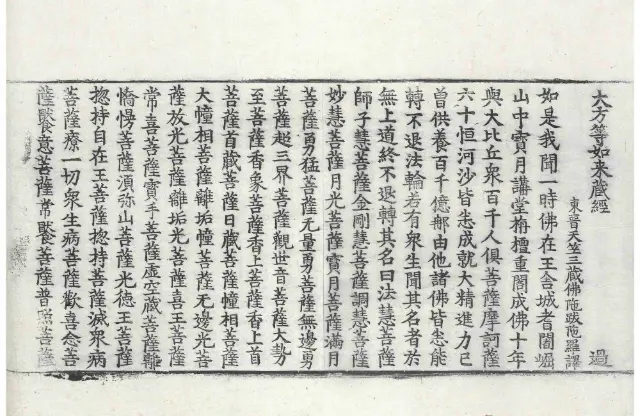 大方等如来蔵經
東晋天竺三蔵佛陁跋陁羅譯 過
如是我聞一時佛在王舎城耆闍崛
山中寳月講堂栴檀重閣成佛十年
與大比丘衆百千人俱菩薩摩訶薩
六十恒河沙皆悉成就大精進力已
曽供養百千億那由他諸佛皆悉能
轉不退法輪若有衆生聞其名者於
無上道終不退轉其名曰法慧菩薩
師子慧菩薩金剛慧菩薩調慧菩薩
妙慧菩薩月光菩薩寳月菩薩滿月
菩薩勇猛菩薩无量勇菩薩無邊勇
菩薩超三界菩薩觀世音菩薩大勢
至菩薩香象菩薩香上菩薩香上首
菩薩首蔵菩薩日蔵菩薩幢相菩薩
大幢相菩薩離垢幢菩薩无邊光菩
薩放光菩薩離垢光菩薩喜王菩薩
常喜菩薩寳手菩薩虚空蔵菩薩離
憍慢菩薩湏弥山菩薩光德王菩薩
揔持自在王菩薩揔持菩薩滅衆病
菩薩療一切衆生病菩薩歡喜念菩
薩饜意菩薩常饜菩薩普照菩薩